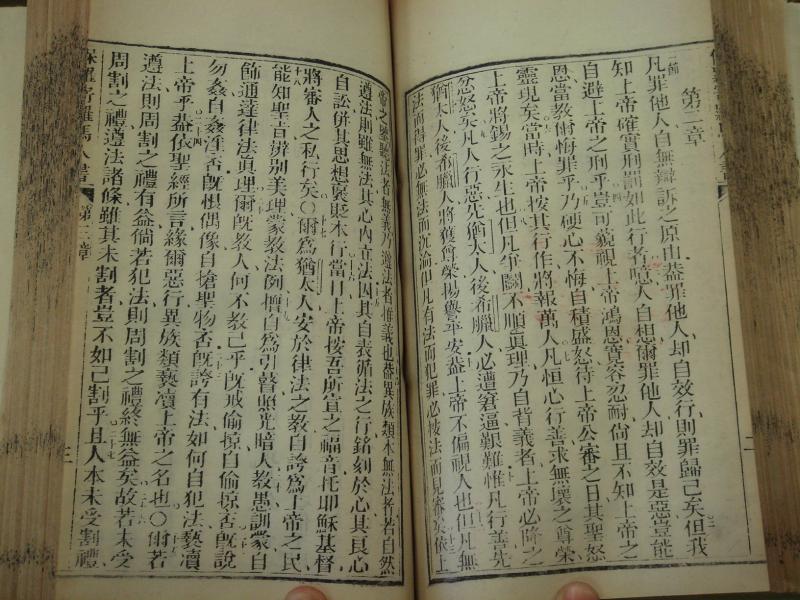 第二章
凡罪他人自無辯訴之原由蓋罪他人却自效行則罪歸己矣但我
知上帝確實刑罰如此行者噫人自想爾罪他人却自效是惡豈能
自避上帝之刑乎豈可藐視上帝鴻恩寬容忍耐倘且不知上帝之
恩當教爾悔罪乎乃硬心不悔自積盛怒待上帝公審之日其聖怒
靈現矣當時上帝按其行作將報萬人凡恒心行善求無壞之尊榮
上帝將錫之永生也但凡爭鬭不順眞理乃自背義者上帝必降之
忿怒矣凡人行惡先猶太人後希臘人必遭窘逼艱難惟凡行善先
猶太人後希臘人將獲尊榮揚譽平安蓋上帝不偏視人也但凡無
法而得罪必無法而沉淪但凡有法而犯罪必按法而見審矣依上
帝之 聽法者無義乃遵法者推義也蓋異族類本無法者若自然
遵法則雖無法其心內立法因其自表循法之行銘刻於心其良心
自訟併其思想褒貶本行當日上帝按吾所宣之福音托耶穌基督
將審人之私行矣〇爾爲猶太人安於律法之教自誇爲上帝之民
能知聖旨辨別美理蒙教法例擅自爲引瞽照光暗人教愚訓蒙自
飾通達律法眞理爾旣教人何不教己乎旣戒偷掠自偷掠否旣說
勿姦自姦淫否旣惧偶像自搶聖物否旣誇有法如何自犯法褻瀆
上帝乎蓋依聖經所言緣爾惡行異族類褻瀆上帝之名也〇爾若
遵法則周割之禮有益倘若犯法則周割之禮終無益矣故若未受
周割之禮遵法諸條雖其未割者豈不如已割乎且人本未受割禮
保羅寄羅馬人書
第二章
二
三